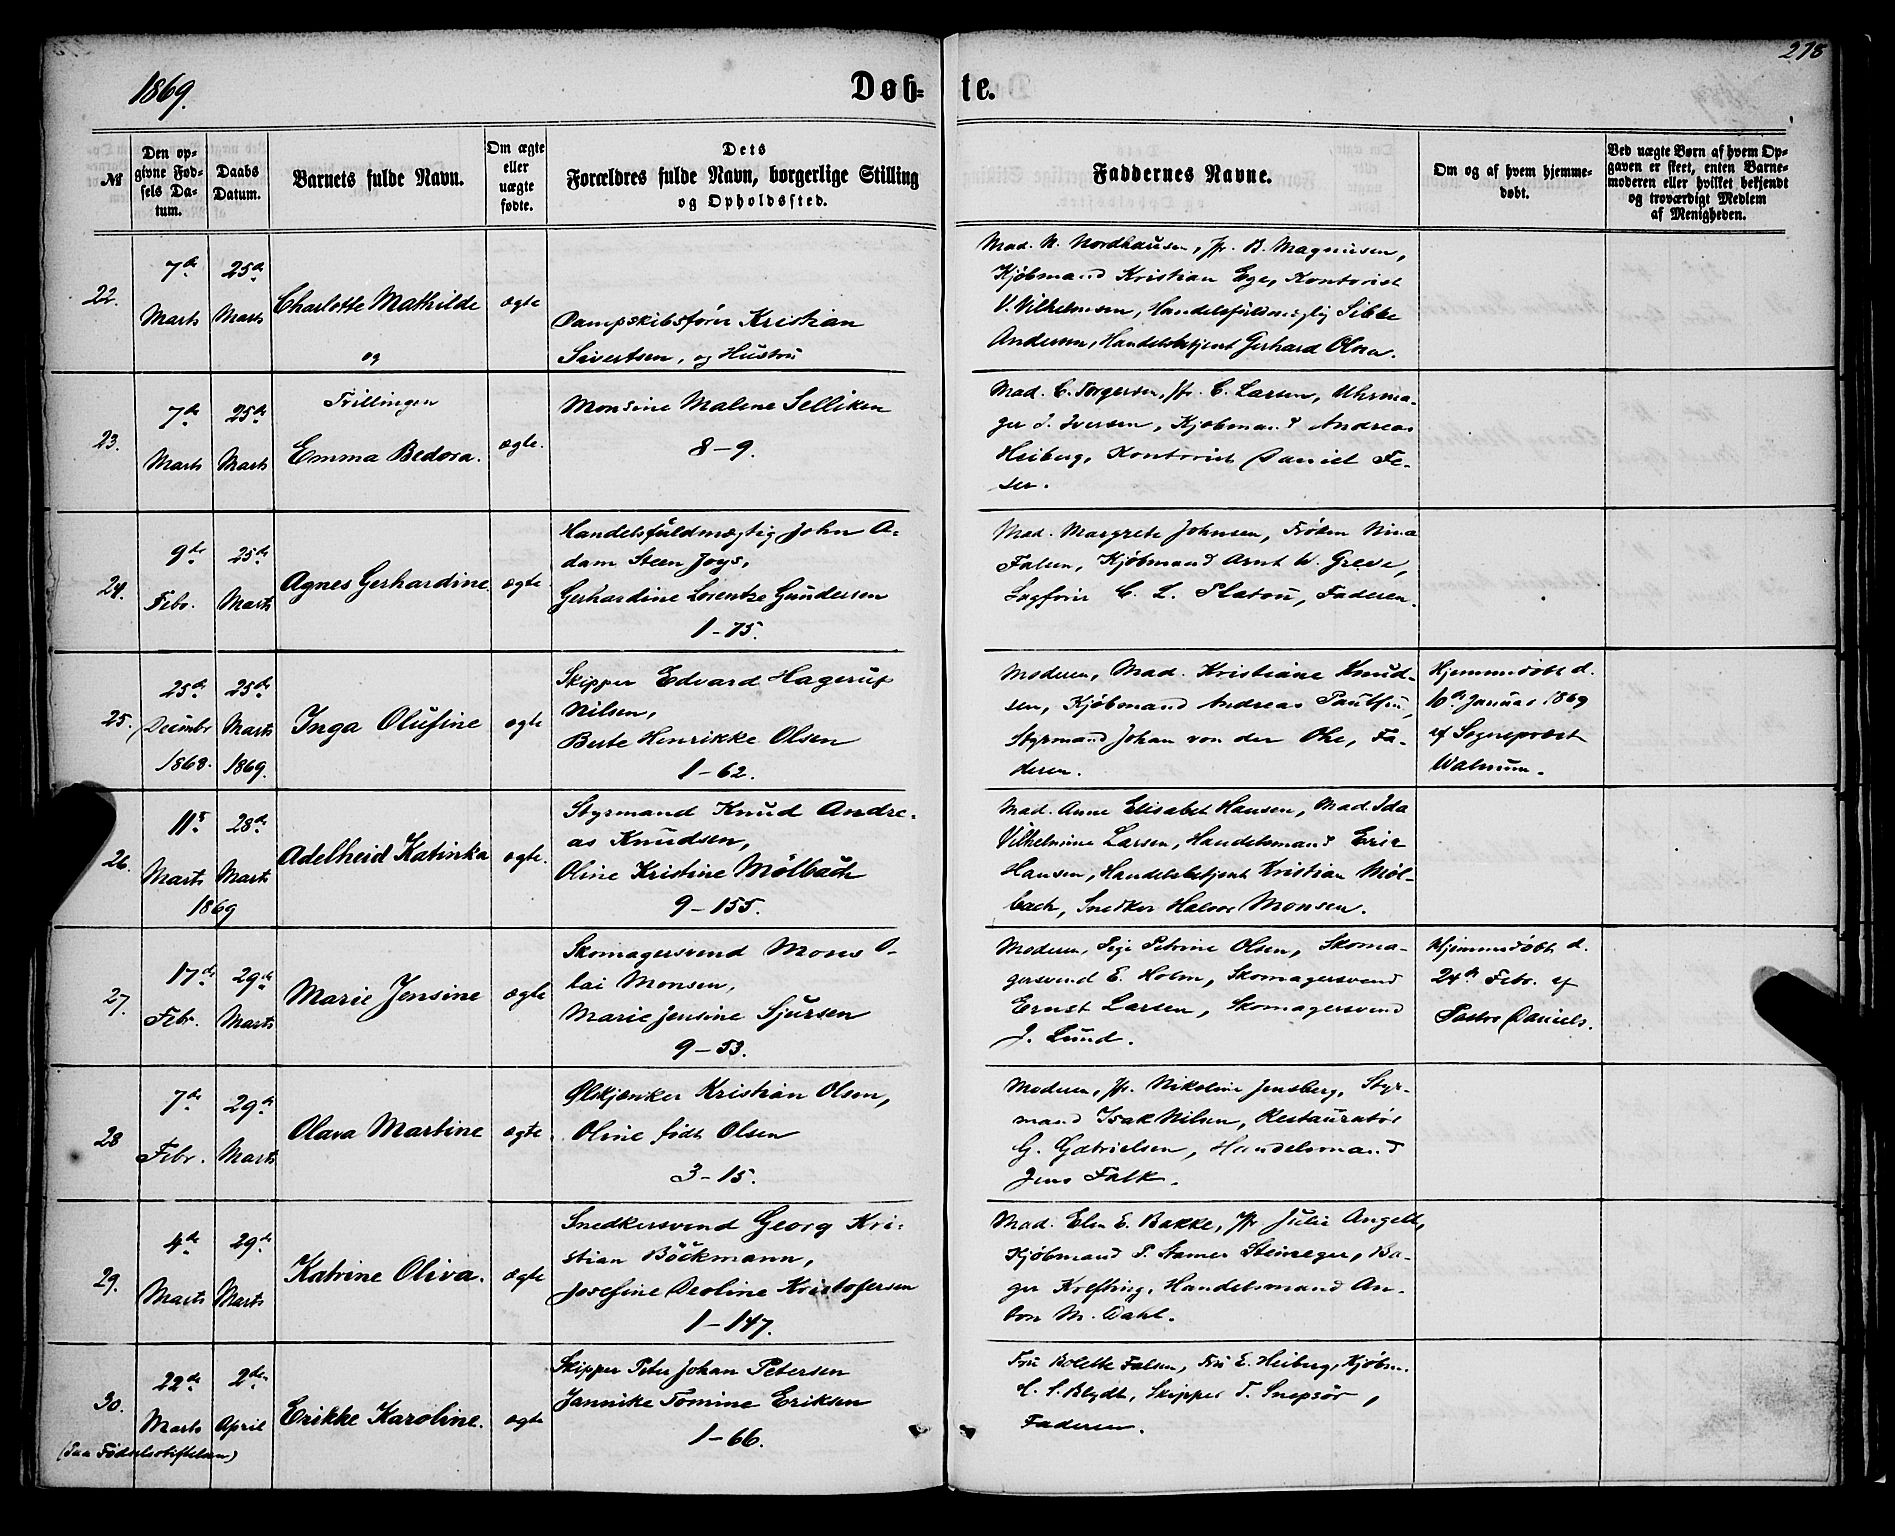 1869.
Døb-
te.
278
№
Den op-
givne Fød-
sels Da-
tum.
Daabs
Datum.
Barnets fulde Navn.
Om ægte
eller
uægte
fødte.
Dets
Forældres fulde Navn, borgerlige Stilling
og Opholdssted.
Faddernes Navne.
Om og af hvem hjemme-
døbt.
Ved uægte Børn af hvem Op-
gaven er skeet, enten Barne-
moderen eller hvilket bekjendt
og troværdigt Medlem
af Menigheden.
22.
7de
Marts
25de
Marts
Charlotte Mathilde
og
ægte
Dampskibsfører Kristian
Sivertsen, og Hustru
Mad. N. Nordhausen, Jfr. B. Magnusen,
Kjøbmand Kristian Ege, Kontorist
V. Vilhelmsen, Handelsfuldmægtig Sibbe
Andersen, Handelsbetjent Gerhard Olsen.
23.
7de
Marts
25de
Marts
Tvillingen
Emma Bedora.
ægte.
Monsine Malene Selliken
8-9.
Mad. C. Torgersen, Jfr. C. Larsen, Uhrma-
ger J. Iversen, Kjøbmand Andreas
Heiberg, Kontorist Daniel Fe-
ser.
24.
9de
Febr.
25de
Marts
Agnes Gerhardine
ægte
Handelsfuldmægtig John A-
dam Steen Joys,
Gerhardine Lorentze Gundersen
1-75.
Mad. Margrete Johnsen, Frøken Nina
Falsen, Kjøbmand Arnt W. Greve,
Sagfører C. L. Platou, Faderen.
25.
25de
Decembr
1868.
25de
Marts
1869.
Inga Olufine
ægte
Skipper Edvard Hagerup
Nilsen,
Berte Henrikke Olsen
1-62.
Moderen, Mad. Kristiane Knud-
sen, Kjøbmand Andreas Paulsen,
Styrmand Johan von der Ohe, Fa-
deren.
Hjemmedøbt d.
10de Januar 1869
af Sogneprest
Walnum.
26.
11te
Marts
1869
28de
Marts
Adelheid Katinka
ægte.
Styrmand Knud Andre-
as Knudsen,
Oline Kristine Mølbach
9-155.
Mad. Anne Elisabet Hansen, Mad. Ida
Vilhelmine Larsen, Handelsmand Eric
Hansen, Handelsbetjent Kristian Møl-
bach, Snedker Halvor Monsen.
27.
17de
Febr.
29de
Marts
Marie Jensine
ægte
Skomagersvend Mons O-
lai Monsen,
Marie Jensine Sjursen
9-53.
Moderen, Pige Petrine Olsen, Skoma-
gersvend E. Holm, Skomagersvend
Ernst Larsen, Skomagersvend
J. Lund.
Hjemmedøbt d.
24de Febr. af
Pastor Daniels.
28
7de
Febr.
29de
Marts
Olava Martine
ægte.
Ølskjænker Kristian Olsen,
Oline født Olsen
3-15.
Moderen, Jfr. Nikoline Jensberg, Styr-
mand Isak Nilsen, Restauratør
G. Gabrielsen, Handelsmand
Jens Falk.
29.
4de
Marts
29de
Marts
Katrine Oliva.
ægte
Snedkersvend Georg Kri-
stian Böckmann,
Josefine Deoline Kristofersen
1-147.
Mad. Elen E. Bakke, Jfr. Julie Angell,
Kjøbmand P. Stamer Steineger, Ba-
ger Kolfting, Handelsmand An-
ton M. Dahl.
30.
22de
Marts
(Paa Fødselsstiftelsen)
2den
April
Erikke Karoline.
ægte
Skipper Peter Johan Petersen
Jannike Tomine Eriksen
1-66.
Fru Bolette Falsen, Fru E. Heiberg, Kjøbm.
H. S. Blydt, Skipper T. Snepsør,
Faderen.